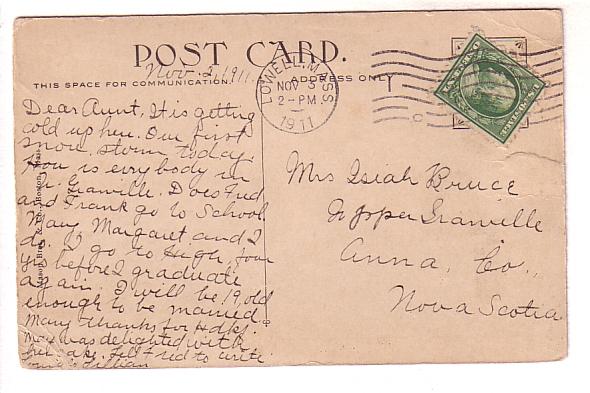 POST CARD.
Nov. 2, 1911.
THIS SPACE FOR COMMUNICATION.
ADDRESS ONLY
LOWELL, MASS
NOV 3
2-PM
1911
Dear Aunt, It is getting
cold up here. Our first
snow storm today.
How is everybody in
U. Granville. Does Fred
and Frank go to School
May, Margaret and I
do. I go to High, four
yrs before I graduate
again. I will be 19, old
enough to be married.
Many thanks for Hdkf.
May was delighted with
her to write
Lillian
Mrs Isiah Bruce
Upper Granville
Anna. Co.,
Nova Scotia
Boston, Mass